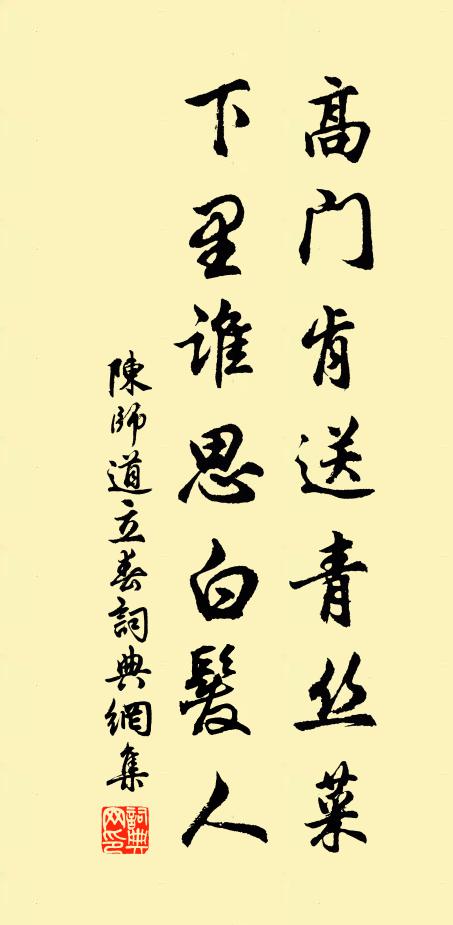 高門肯送青丝菜
下里誰思白髮人
陳師道立春詞典網集
詞典网印